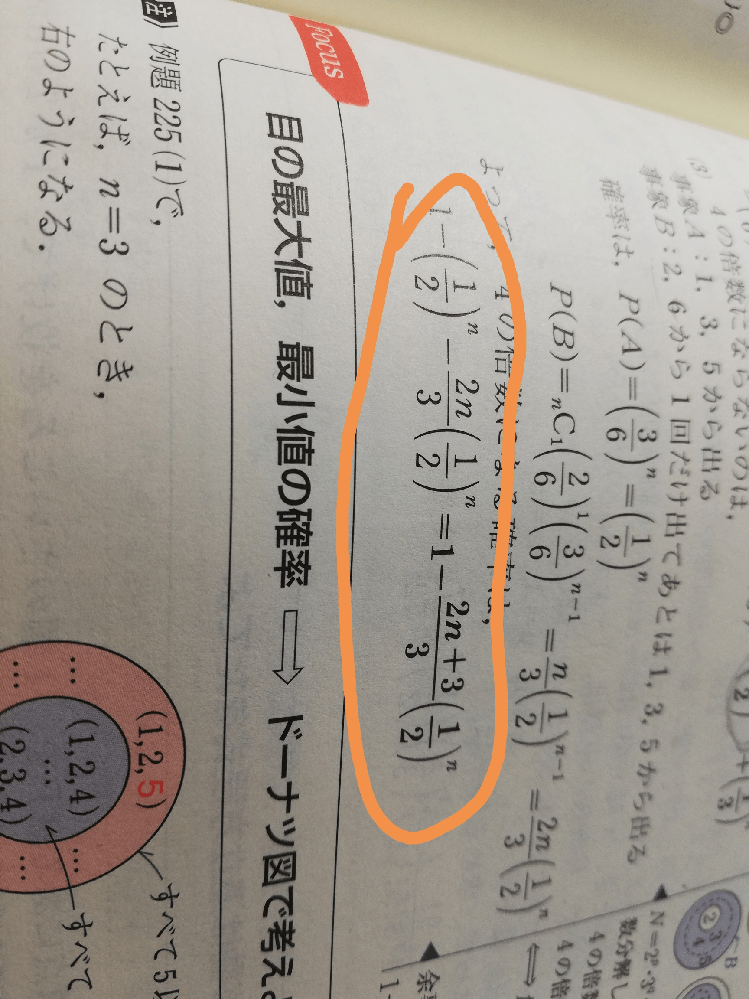 (3) 4の倍数にならないのは，
事象A：1，3，5から出る
事象B：2，6から1回だけ出てあとは1，3，5から出る
確率は，P(A)=(3/6)^n=(1/2)^n
P(B)=nC1(2/6)^1(3/6)^{n-1}=n/3(1/2)^{n-1}=2n/3(1/2)^n
よって，4の倍数になる確率は，
1-(1/2)^n-2n/3(1/2)^n=1-(2n+3)/3(1/2)^n
Focus
目の最大値，最小値の確率 ⇨ ドーナツ図で考え
注》 例題225(1)で，
たとえば，n=3のとき，
右のようになる．
(1,2,5)
… …
(1,2,4)
…
(2,3,4)
すべて5
すべて
4の倍